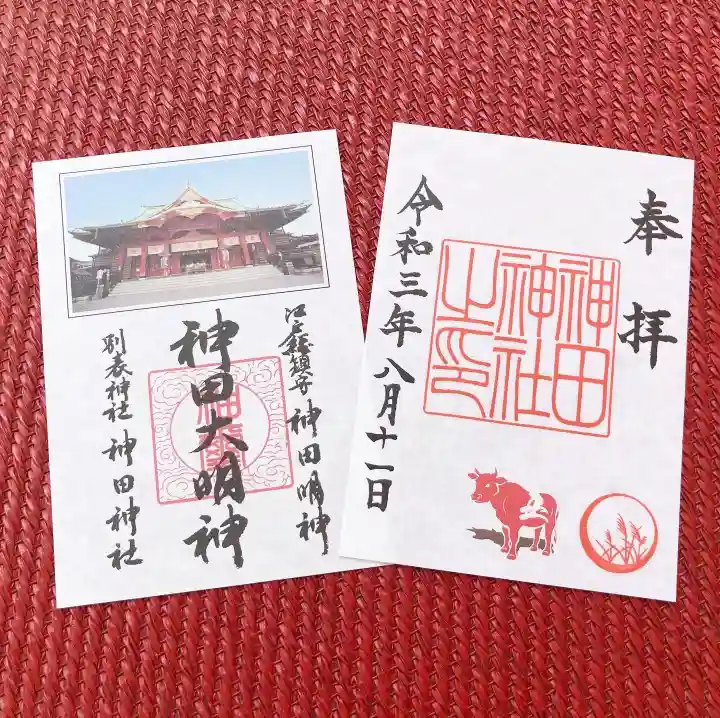 江戸総鎮守 神田明神
神田大明神
別表神社 神田神社
奉拝
神田
神社
之印
令和三年 八月十一日